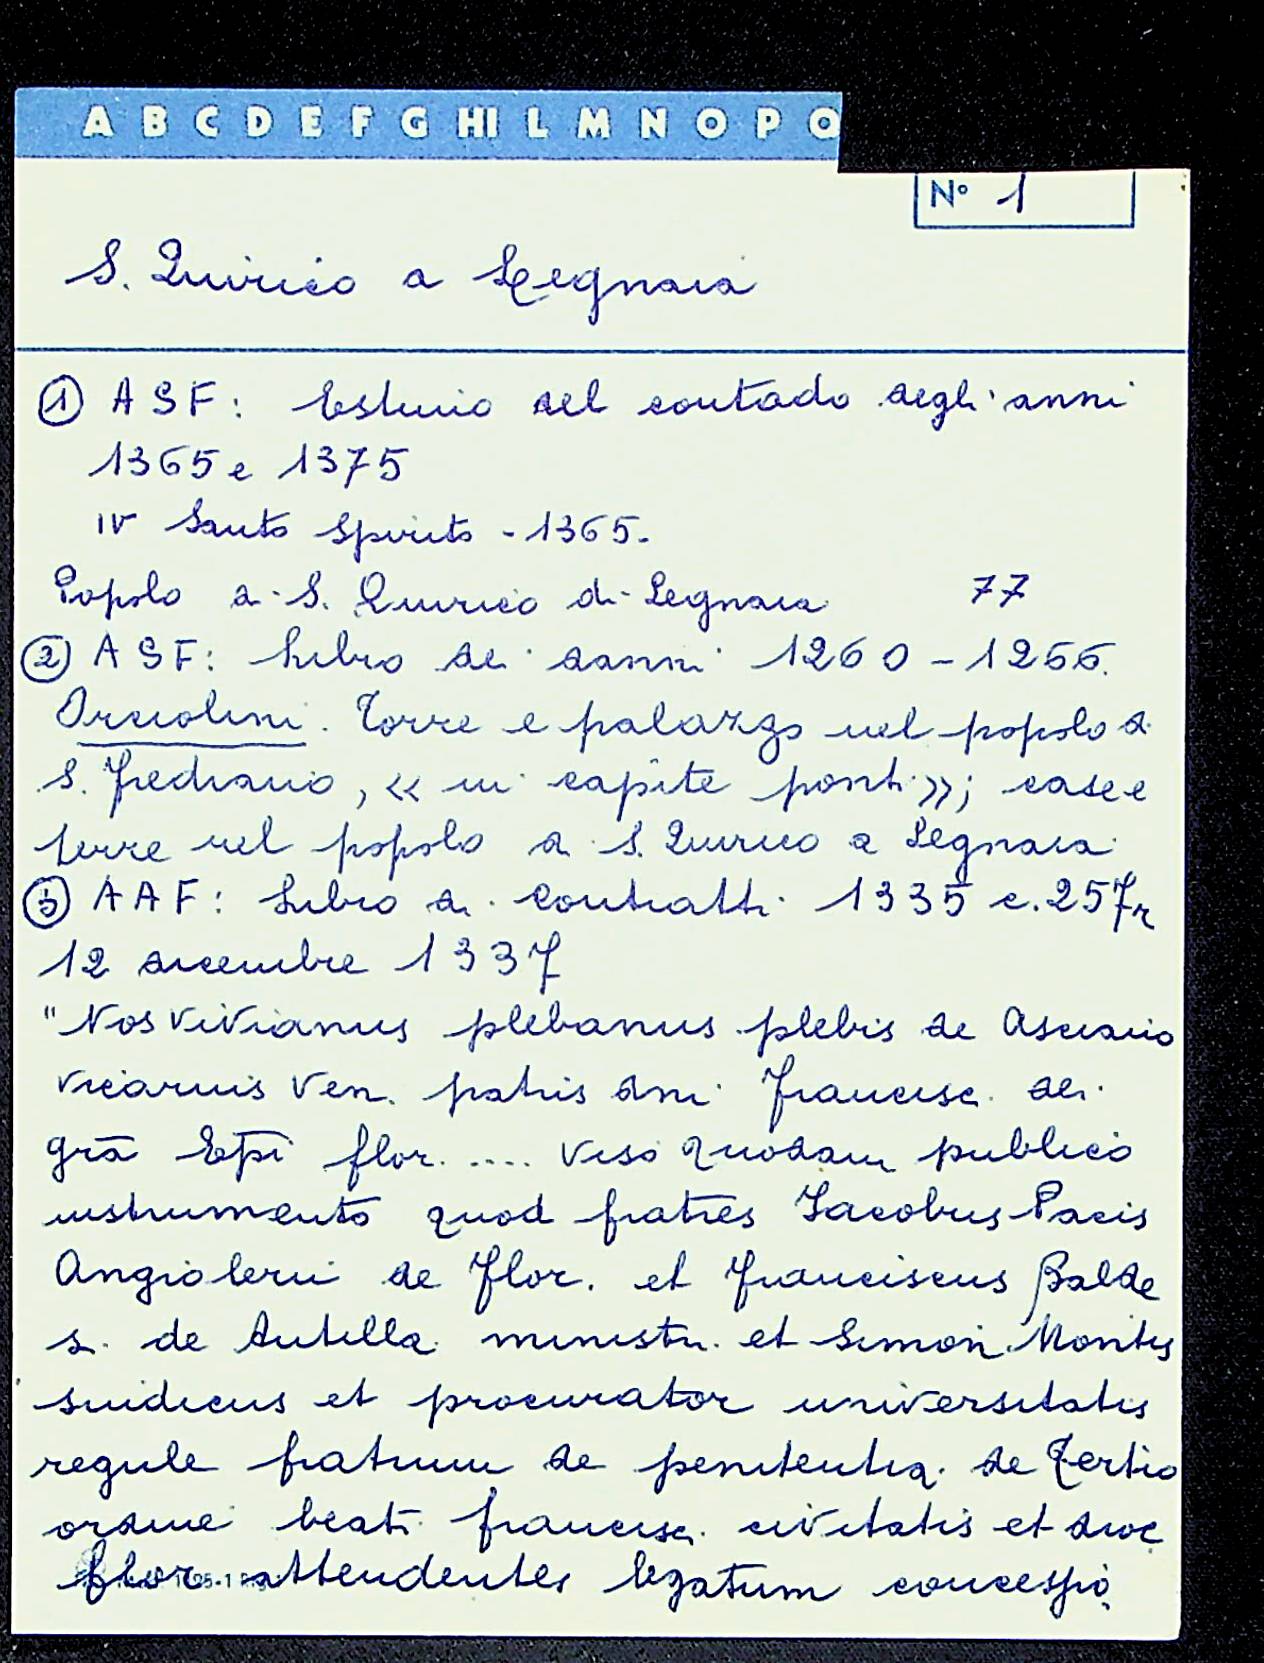 A B C D E F G HI L M N O P Q
N° 1
S. Quirico a Legnaia
① ASF: Estimo del contado degli anni
1365 e 1375
IV Santo Spirito - 1365.
Popolo di S. Quirico di Legnaia 77
② ASF: Libro dei danni 1260-1266.
Orciolini. Torre e palazzo nel popolo di
S. Frediano, « in capite ponti »; case e
terre nel popolo di S. Quirico a Legnaia
③ AAF: Libro di contratti 1335 c. 257r
12 dicembre 1337
"Nos Vivianus plebanus plebis de Asciano
vicarius Ven. patris dni Francisc. dei
grā Epī flor. .... viso quodam publico
instrumento quod fratres Jacobus Pacis
Angiolerii de Flor. et Franciscus Balde
s. de Antilla ministri et Simon Montis
sindicus et procurator universitatis
regule fratrum de penitentia de Tertio
ordine beati francisci civitatis et dioc
flor attendentes legatum